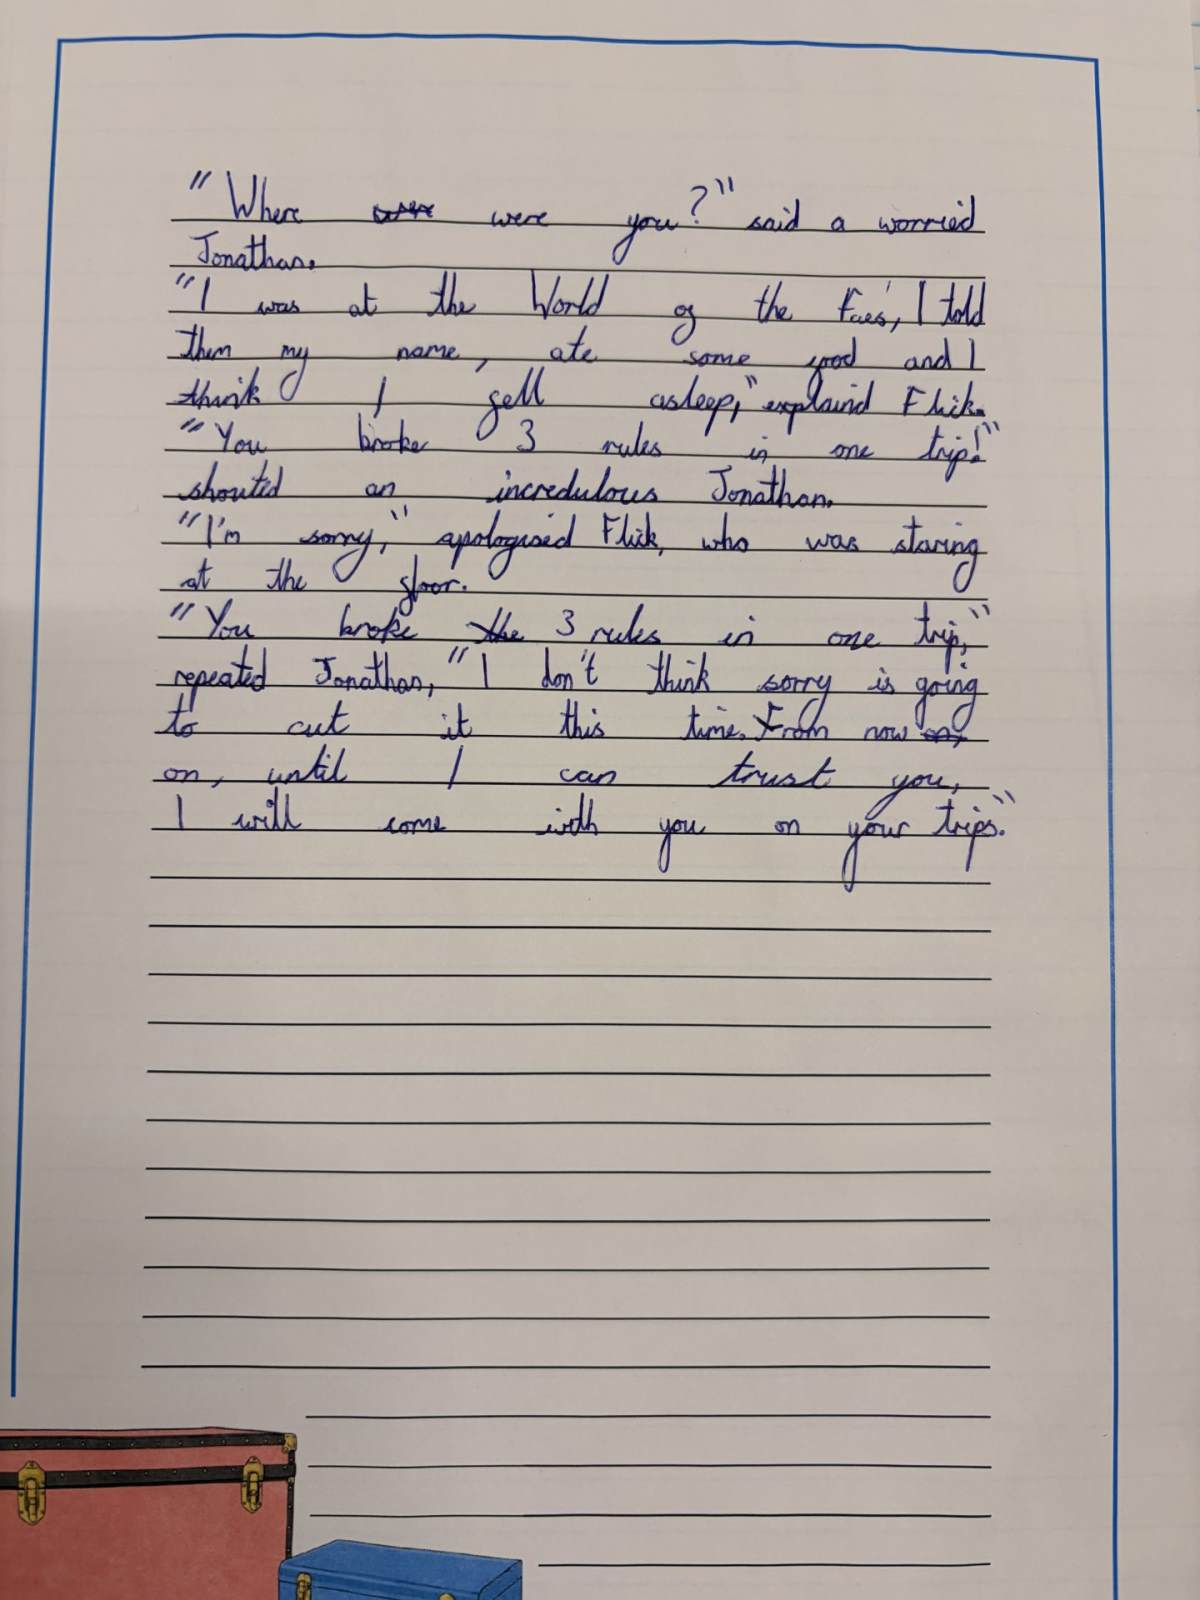 "Where were you?" said a worried
Jonathan.
"I was at the World of the Faes', I told
them my name, ate some food and I
think I fell asleep," explaind Flick.
"You broke 3 rules in one trip!"
shouted an incredulous Jonathan.
"I'm sorry," apologised Flick, who was staring
at the floor.
"You broke the 3 rules in one trip,"
repeated Jonathan, "I don't think sorry is going
to cut it this time. From now on,
on, until I can trust you,
I will come with you on your trips."